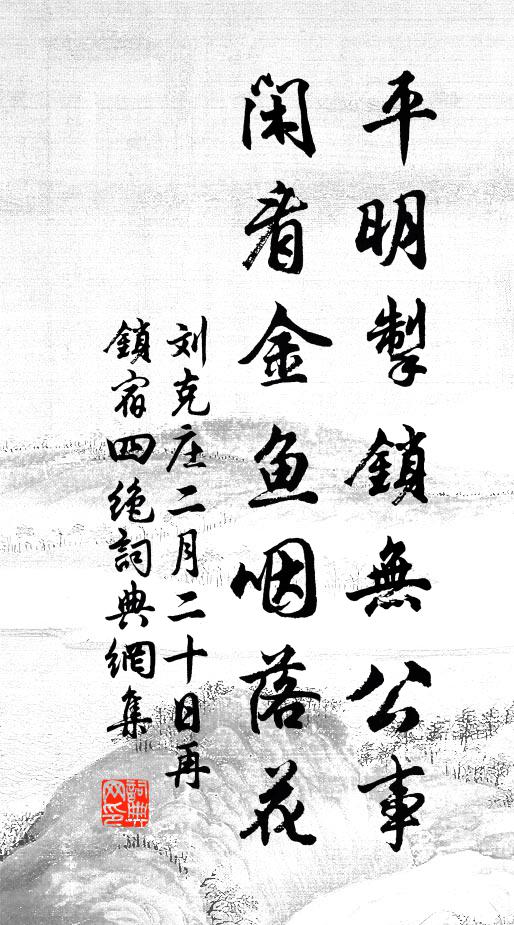 平明掣鎖無公事
閑看金鱼咽落花
刘克庄二月二十日再
鎖宿四绝詞典網集
詞典网印